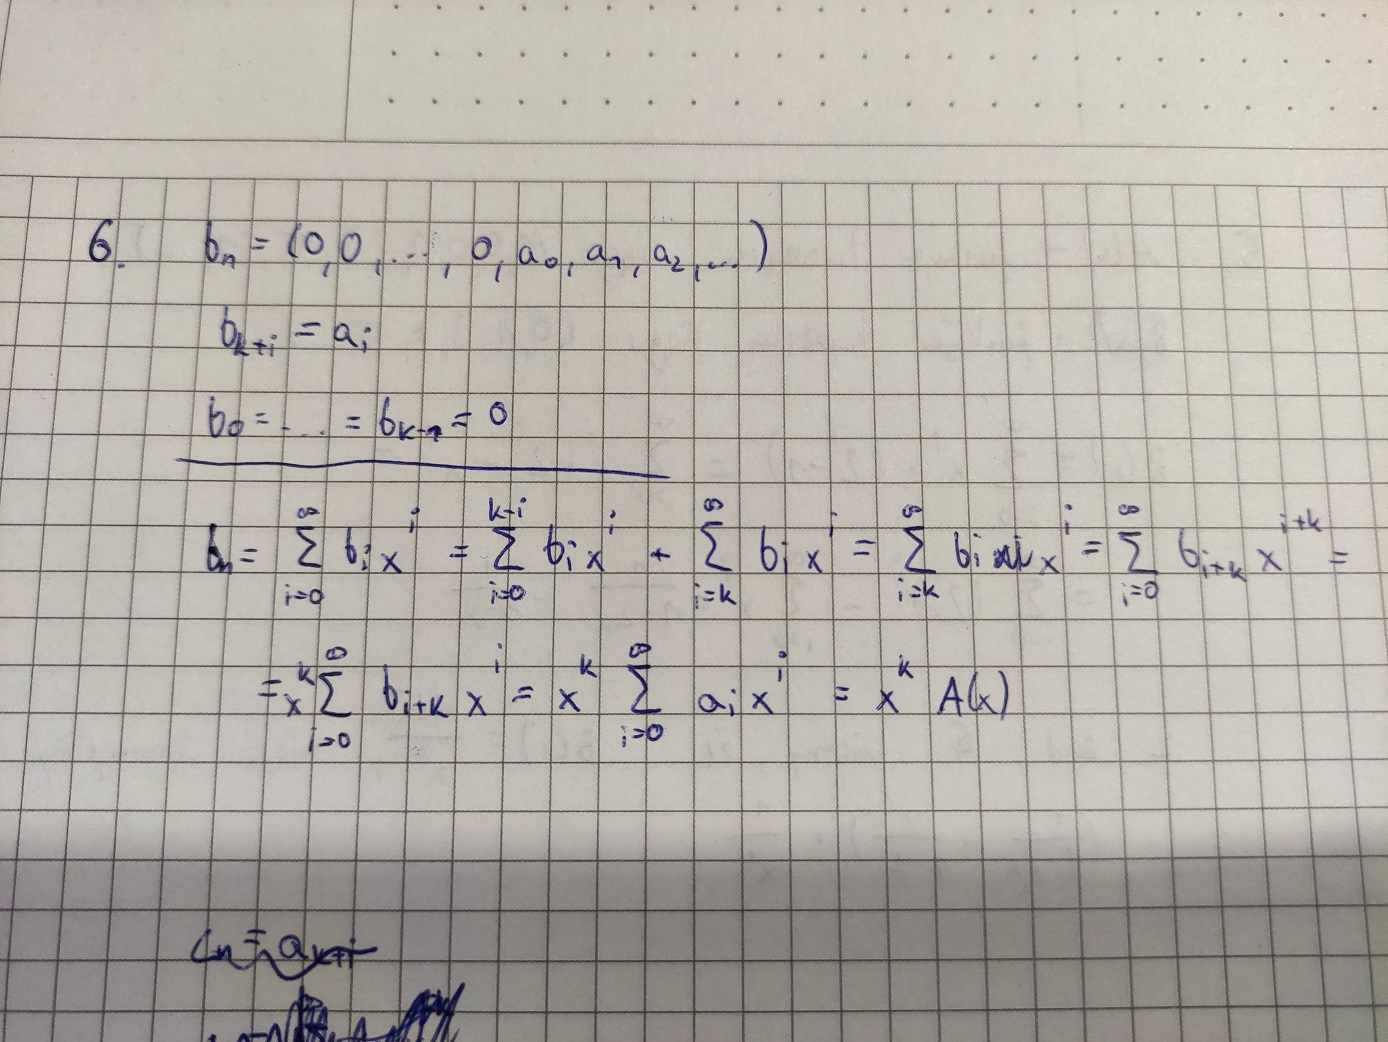 6. bₙ = (0,0,..., 0, a₀, a₁, a₂, ...)
b_{k+i} = a_i
b₀ = ... = b_{k-1} = 0
bₙ = \sum_{i=0}^{∞} b_i x^i = \sum_{i=0}^{k-i} b_i x^i + \sum_{i=k}^{∞} b_i x^i = \sum_{i=k}^{∞} b_i x^i = \sum_{i=0}^{∞} b_{i+k} x^{i+k} =
= x^k \sum_{i=0}^{∞} b_{i+k} x^i = x^k \sum_{i=0}^{∞} a_i x^i = x^k A(x)
cₙ = a_{k+i}